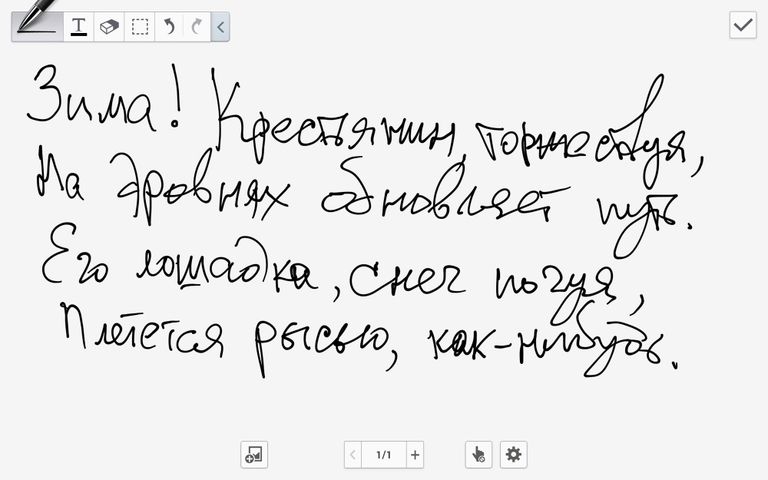 T
1/1
Зима! Крестьянин, торжествуя,
На дровнях обновляет путь.
Его лошадка, снег почуя,
Плетется рысью, как-нибудь.